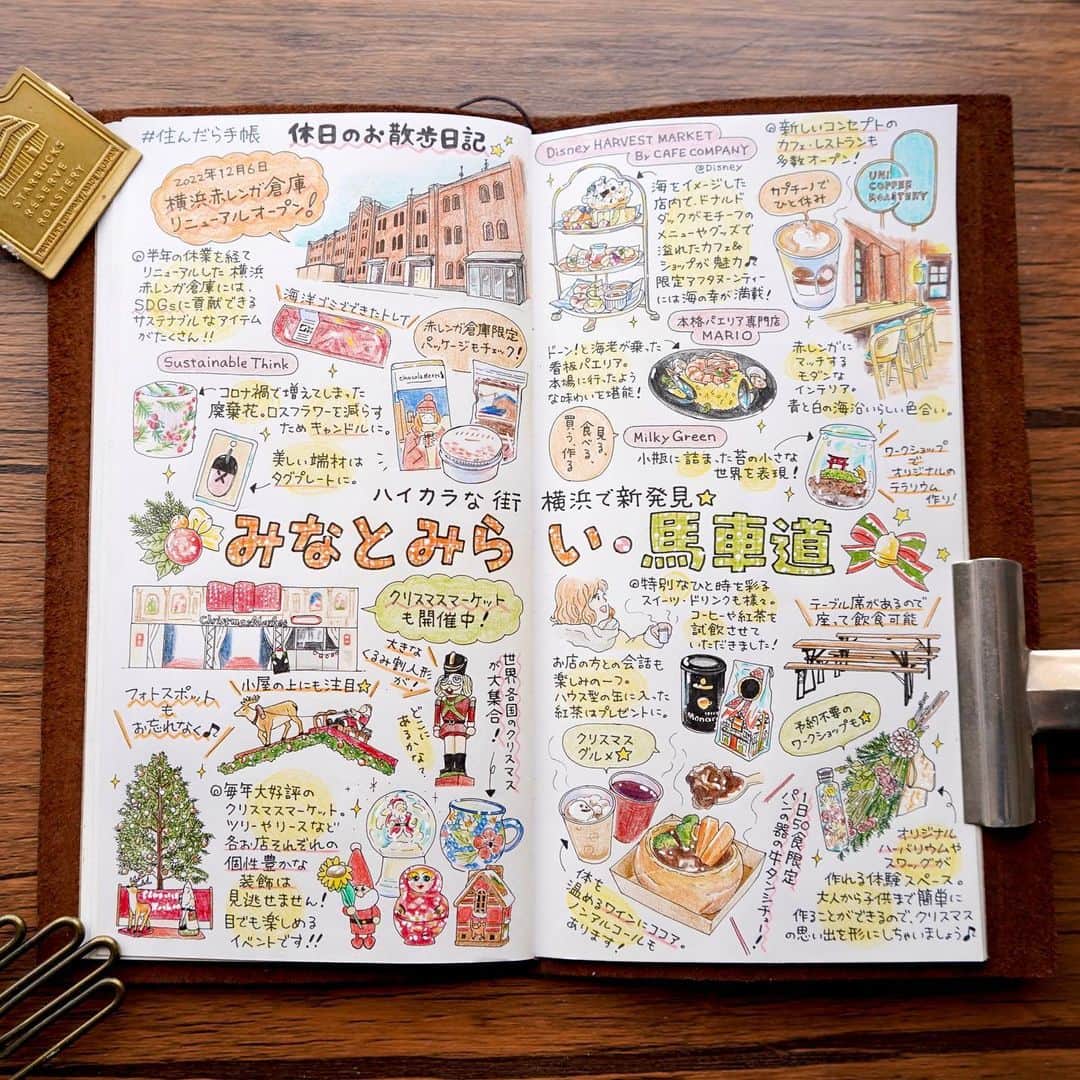 STARBUCKS
RESERVE
ROASTERY
#住んだら手帳
休日のお散歩日記
2022年12月6日
横浜赤レンガ倉庫
リニューアルオープン!
◎半年の休業を経て
リニューアルした横浜
赤レンガ倉庫には、
SDGsに貢献できる
サステナブルなアイテム
がたくさん!!
海洋ゴミでできたトレイ
赤レンガ倉庫限定
パッケージもチェック!
Sustainable Think
コロナ禍で増えてしまった
廃棄花。ロスフラワーを減らす
ためキャンドルに。
美しい端材は
タグプレートに。
ハイカラな街 横浜で新発見☆
みなとみらい・馬車道
Christmas Market
クリスマスマーケット
も開催中!
フォトスポット
もお忘れなく♪
小屋の上にも注目☆
大きな
くるみ割人形
が!
どこに
あるかな?
世界各国のクリスマス
が大集合!
◎毎年大好評の
クリスマスマーケット。
ツリーやリースなど
各お店それぞれの
個性豊かな
装飾は
見逃せません!
目でも楽しめる
イベントです!!
Disney HARVEST MARKET
By CAFE COMPANY
@Disney
海をイメージした
店内で、ドナルド
ダックがモチーフの
メニューやグッズで
溢れたカフェ&
ショップが魅力♪
限定アフタヌーンティー
には海の幸が満載!
◎新しいコンセプトの
カフェ・レストランも
多数オープン!
カプチーノで
ひと休み
UNI
COFFEE
ROASTERY
本格パエリア専門店
MARIO
ドーン!と海老が乗った
看板パエリア。
本場に行ったよう
な味わいを堪能!
赤レンガに
マッチする
モダンな
インテリア。
青と白の海沿いらしい色合い。
見る、
食べる、
買う、作る
Milky Green
小瓶に詰まった苔の小さな
世界を表現!
ワークショップ
で
オリジナルの
テラリウム
作り!
◎特別なひと時を彩る
スイーツ・ドリンクも様々。
コーヒーや紅茶を
試飲させて
いただきました!
お店の方との会話も
楽しみの一つ。
ハウス型の缶に入った
紅茶はプレゼントに。
テーブル席があるので
座って飲食可能
予約不要の
ワークショップも☆
クリスマス
グルメ☆
1日50食限定
パンの器の牛タンシチュー!
体も
温めるワインにココア。
ノンアルコールも
あります!
オリジナル
ハーバリウムや
スワッグが
作れる体験スペース。
大人から子供まで簡単に
作ることができるので、クリスマス
の思い出を形にしちゃいましょう♪